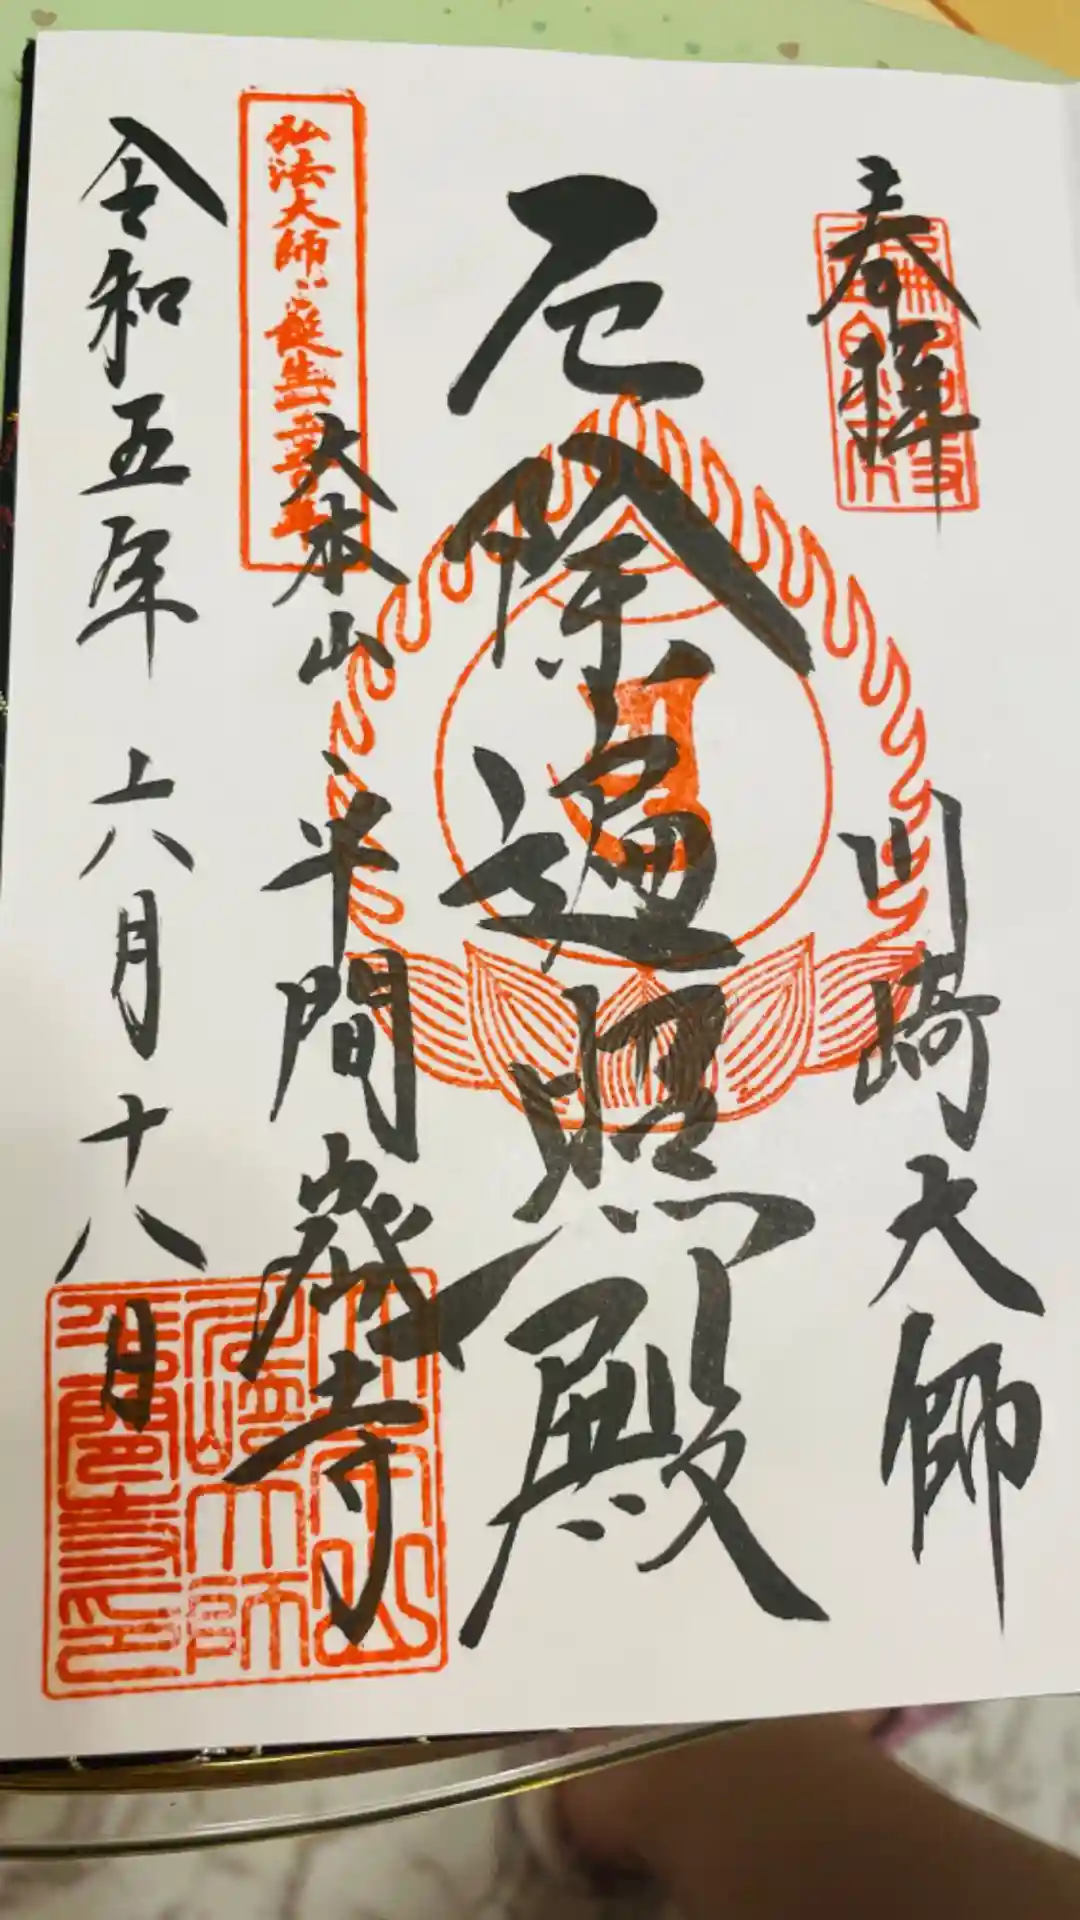 奉拝
川崎大師
厄除遍照殿
大本山 平間寺
弘法大師ご誕生
令和五年 六月十八日